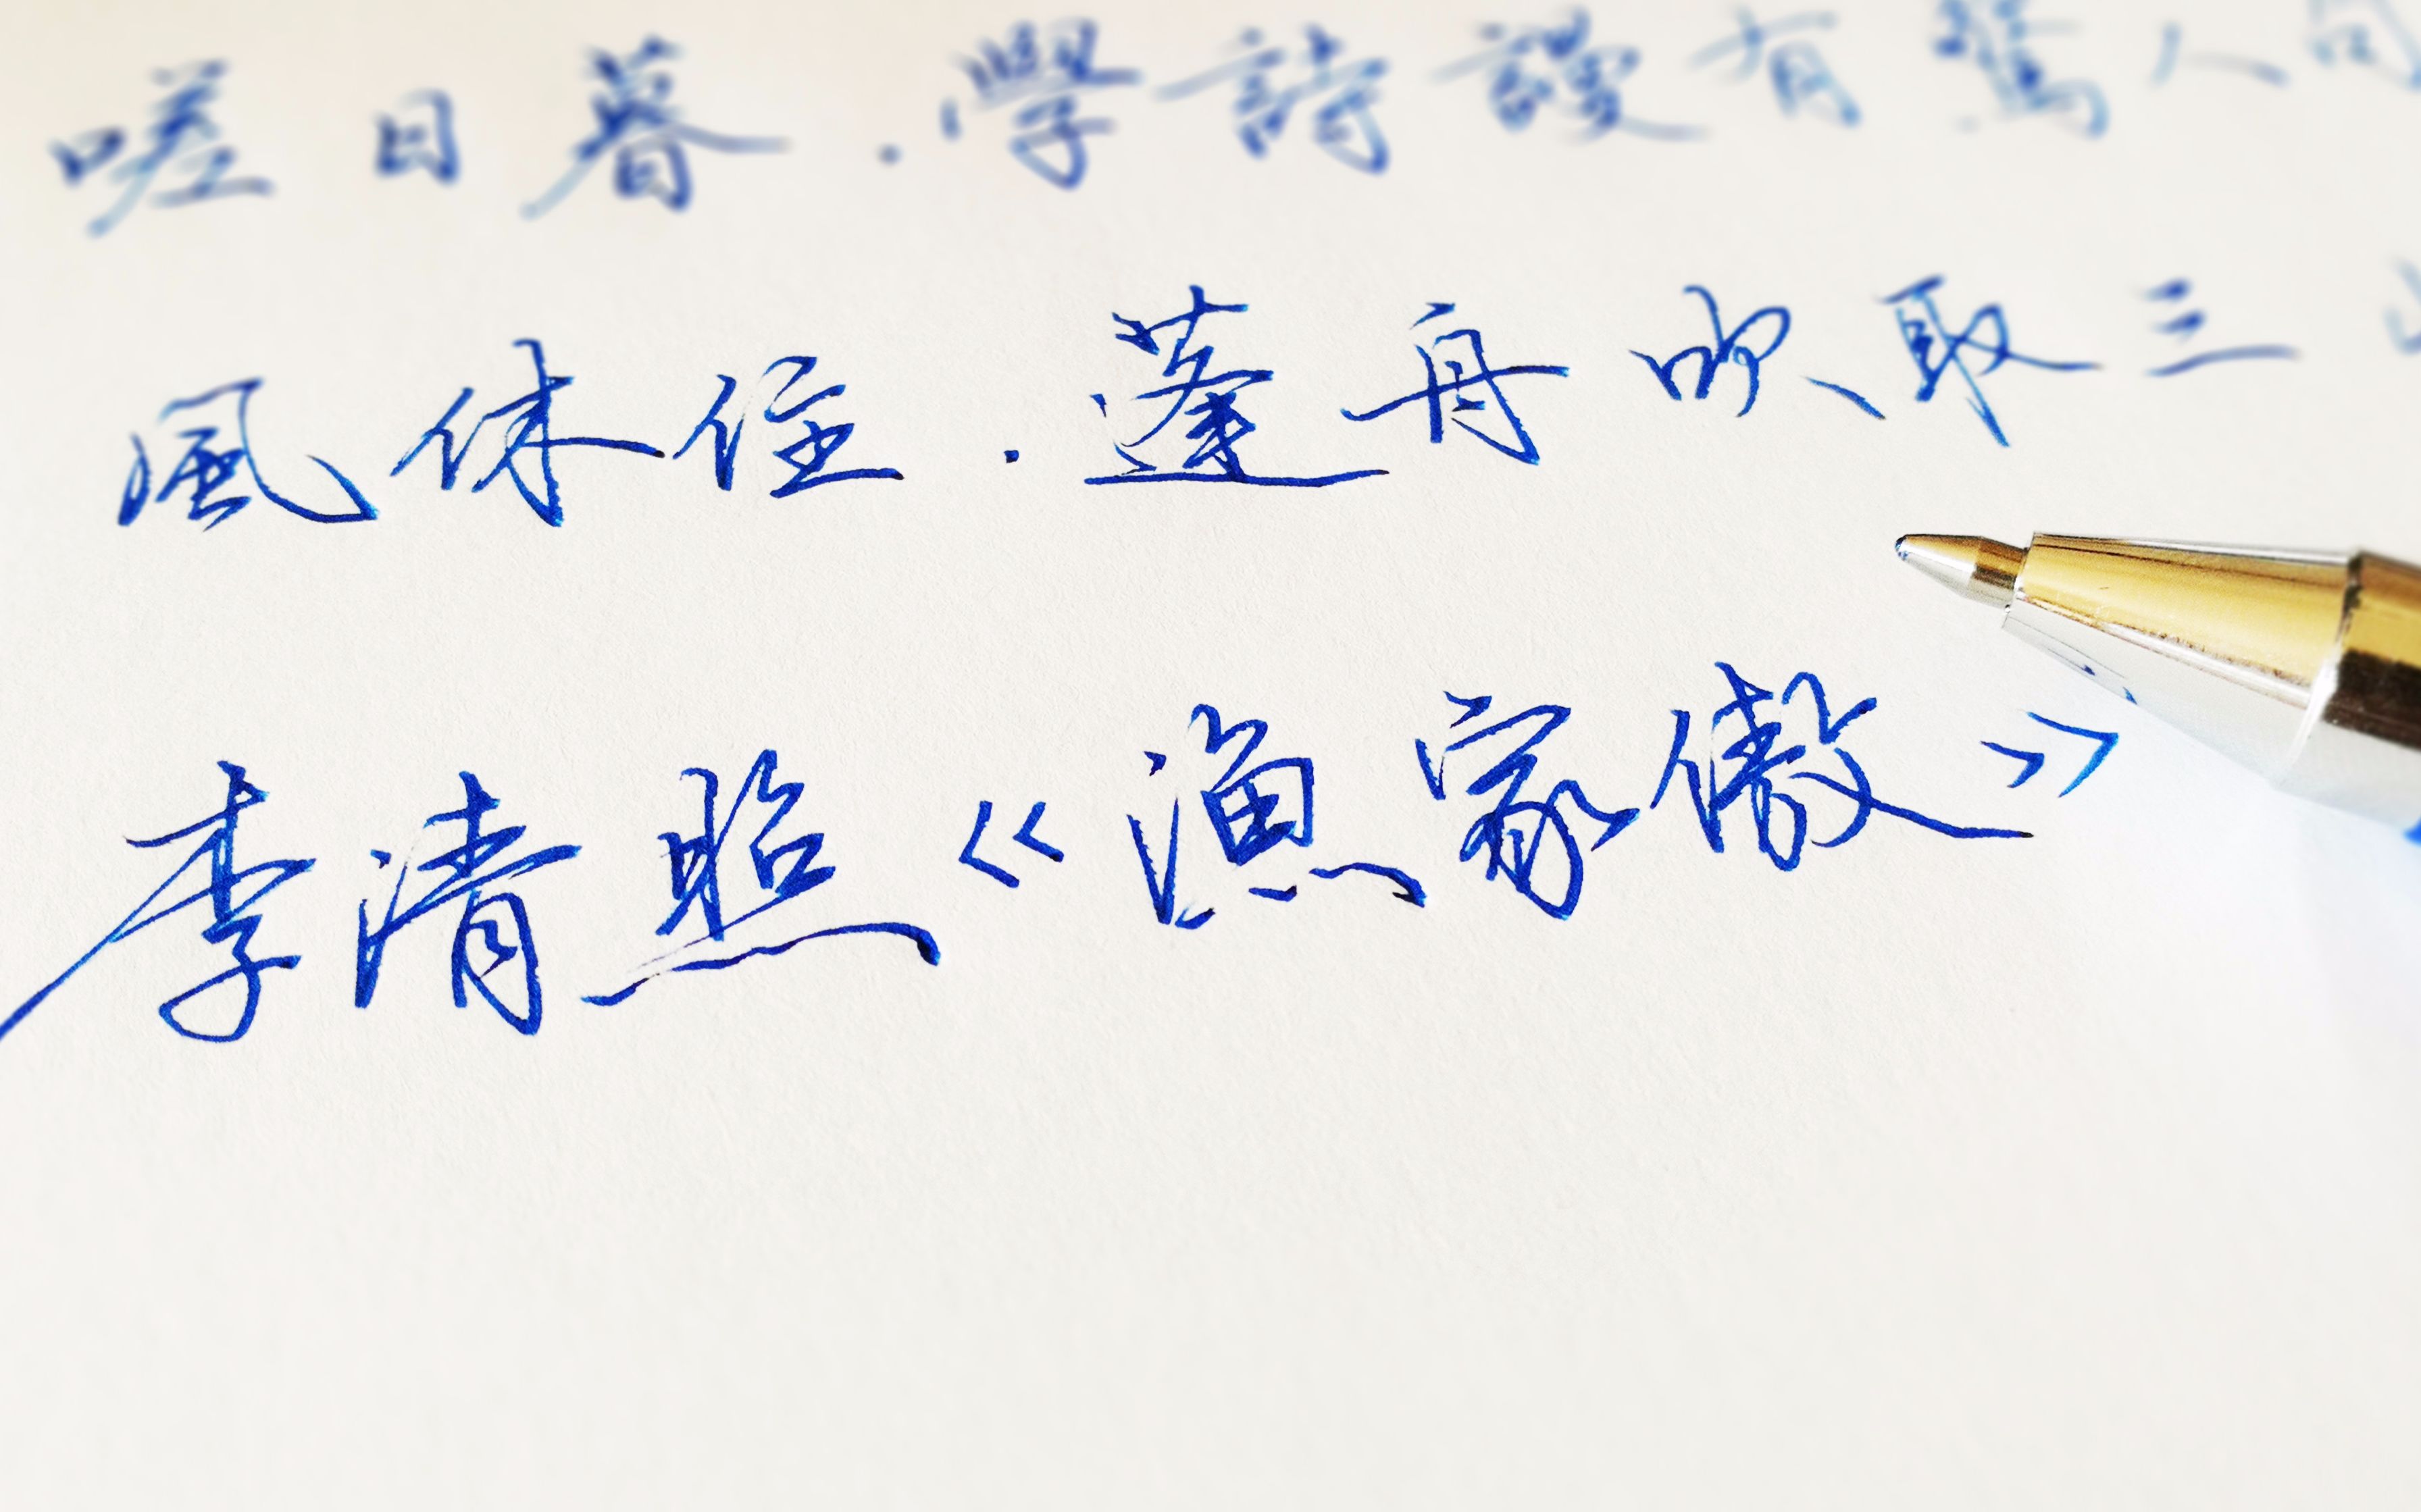 嗟日暮.學詩謾有驚人句
風休住.蓬舟吹取三
李清照《漁家傲》